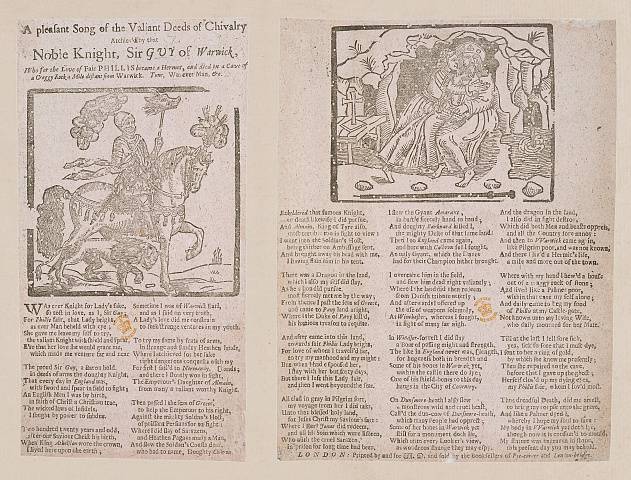 A pleasant Song of the Valiant Deeds of Chivalry
Atchiev'd by that
Noble Knight, Sir GUY of Warwick,
Who for the Love of Fair PHILLIS became a Hermit, and died in a Cave of
a Craggy Rock, a Mile distant from Warwick. Tune, Was ever Man, &c.
WAs ever Knight for Lady's sake,
so tost in love, as I, Sir Guy,
For Phillis fair, that Lady bright,
as ever Man beheld with eye;
She gave me leave my self to try,
the valiant Knight with shield and spear,
E're that her love she would grant me,
which made me venture far and near
The proud Sir Guy, a Baron bold,
In deeds of arms the doughty Knight,
That every day in England was,
with sword and spear in field to fight;
An English Man I was by birth,
in faith of Christ a Christian true,
The wicked laws of Infidels,
I sought by power to subdue.
Two hundred twenty years and odd,
after our Saviour Christ his birth,
When King Athelstone wore the crown,
I lived here upon the earth;
Sometime I was of Warwick Earl,
and as I said on very truth,
A Lady's love did me constrain
to seek strange ventures in my youth.
To try me fame by feats of arms,
in strange and sundry Heathen lands,
Where I atchieved for her sake
right dangerous conquests with my
For first I sail'd to Normandy,
and there I stoutly won in fight,
The Emperour's Daughter of Almain,
from many a valiant worthy Knight.
Then passed I the seas of Greece,
to help the Emperour to his right,
Against the mighty Soldan's Host,
of puissant Persians for to fight:
Where I did slay of Sarazens,
and Heathen Pagans many a Man,
And slew the Soldan's Cousin dear,
who had to name, Doughty Colbron
Eskeldered that famous Knight,
to death likewise I did pursue,
And Almain, King of Tyre also,
most terrible too in fight to view:
I went into the Soldan's Host,
being thither on Ambassage sent,
And brought away his head with me,
I having slain him in his tent.
There was a Dragon in the land,
which I also my self did slay,
As he a Lion did pursue,
most fiercely met me by the way,
From thence I past the seas of Greece,
and came to Pavy land aright,
Where I the Duke of Pavy killed,
his heinous treason to requite.
And after came into this land,
towards fair Phillis Lady bright,
For love of whom I travel'd far,
to try my manhood and my might:
But when I had espoused her,
I stay'd with her but forty days,
But there I left this Lady fair,
and then I went beyond the seas.
All clad in gray in Pilgrim sort,
my voyage from her I did take,
Unto that blessed holy land,
for Jesus Christ my Saviour's sake:
Where I Earl Jonas did redeem,
and all his Sons which were fifteen,
Who with the cruel Sarazens,
in prison for long time had been.
I slew the Gyant Amarant,
in battle fiercely hand to hand;
And doughty Barknard killed I,
the mighty Duke of that same land:
Then I to England came again,
and here with Colbron fell I fought,
An ugly Gyant, which the Danes
had for their Champion hither brought.
I overcame him in the field,
and slew him dead right valiantly;
Where I the land did then redeem
from Danish tribute utterly;
And afterwards I offered up
the use of weapons solemnly,
At Winchester, whereas I fought,
in sight of many far nigh.
In Windsor-forest I did slay
a Boar of passing might and strength,
The like in England never was,
for hugeness both in breadth and
Some of his bones in Warwick yet,
within the castle there do lye;
One of his shield-bones to this day
hangs in the City of Coventry.
On Dunsmore-heath I also slew
a monstrous wild and cruel beast,
Call'd the dun-cow of Dunsmore-heath,
which many People had opprest;
Some of her bones in Warwick yet
still for a monument doth lie,
Which unto every Looker's view,
as wondrous strange they may espy.
And the dragon in the land,
I also did in fight destroy,
Which did both Men and beasts oppress,
and all the Country sore annoy:
And then to Warwick came again,
like Pilgrim poor, and was not known,
And there I liv'd a Hermit's life,
a mile and more out of the town.
Where with my hand I hew'd a house
out of a craggy rock of stone;
And lived like a Palmer poor,
within that cave my self alone;
And daily came to beg my food
of Phillis at my Castle-gate,
Not known unto my loving Wife,
who daily mourned for her Mate.
Till at the last I fell sore sick,
yea, sick so sore that I must dye;
I sent to her a ring of gold,
by which she knew me presently;
Then she repaired to the cave,
before that I gave up the ghost;
Herself clos'd up my dying eyes,
my Phillis fair, whom I lov'd most.
Thus dreadful Death, did me arrest,
to bring my corpse unto the grave;
And like a Palmer dyed I,
whereby I hope my soul to save:
My body in Warwick yet doth lye,
though now it is consum'd to mould;
My statue was engraven in stone,
this present day you may behold.
LONDON: Printed by and for W. O. and sold by the Booksellers of Pye-corner and London-bridge.